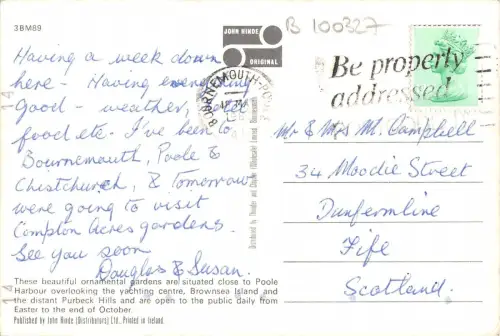 3BM89
JOHN HINDE
ORIGINAL
B 100327
Having a week down
here - Having everything
good - weather, hotel
food etc. I've been to
Bournemouth, Poole &
Chistchurch, & Tomorrow
were going to visit
Compton Acres gardens.
See you soon
Douglas & Susan.
These beautiful ornamental gardens are situated close to Poole
Harbour overlooking the yachting centre, Brownsea Island and
the distant Purbeck Hills and are open to the public daily from
Easter to the end of October.
Published by John Hinde (Distributors) Ltd., Printed in Ireland
BOURNEMOUTH-POOLE
Be properly
addressed
Mr & Mrs M. Campbell
34 Moodie Street
Dunfermline
Fife
Scotland.